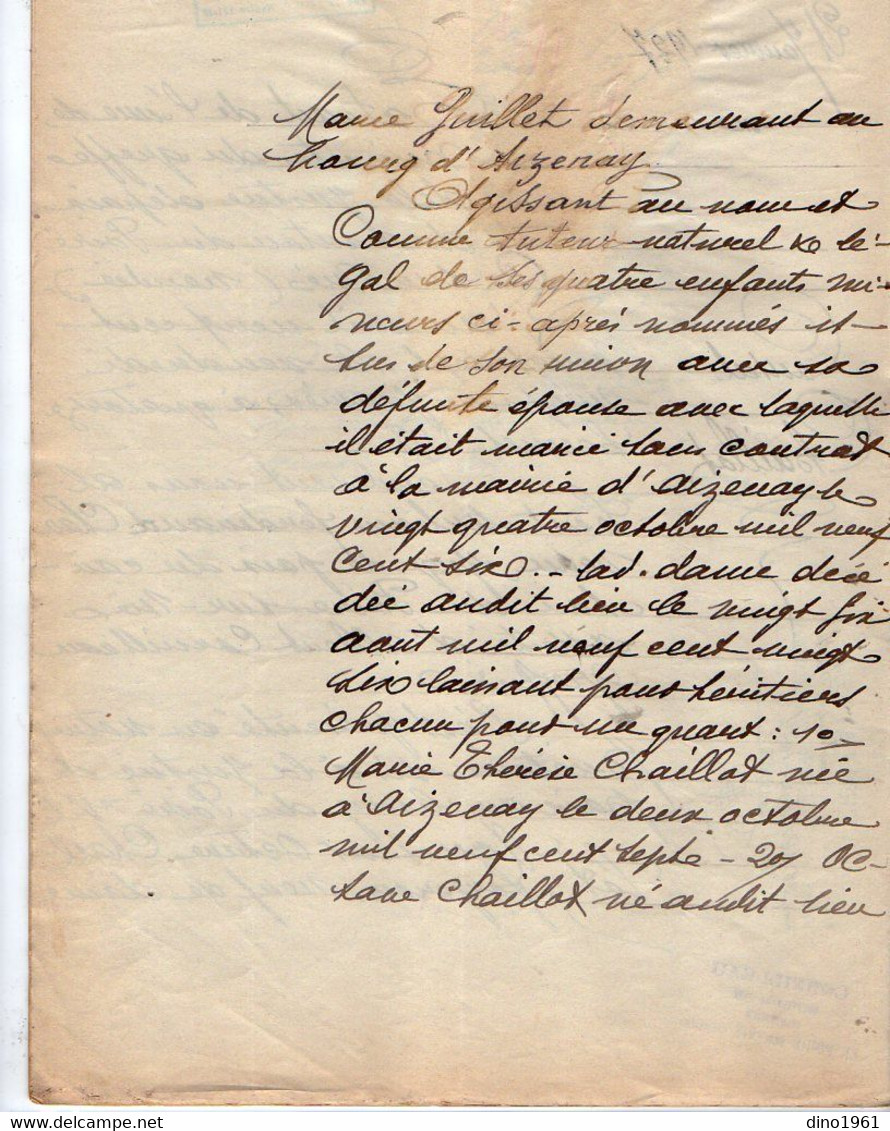 Marie Guillet demeurant au
bourg d'Aizenay.
Agissant au nom et
Comme tuteur naturel & lé-
gal de ses quatre enfants mi-
neurs ci-après nommés is-
sus de son union avec sa
défunte épouse avec laquelle
il était marié sans contrat
à la mairie d'Aizenay le
vingt quatre octobre mil neuf
cent six. - lad. dame décé
dée audit lieu le vingt six
août mil neuf cent vingt
six laissant pour héritiers
chacun pour un quart : 1o
Marie Thérèse Chaillot née
à Aizenay le deux octobre
mil neuf cent sept - 2o/ Oc-
tave Chaillot né audit lieu
dino1961